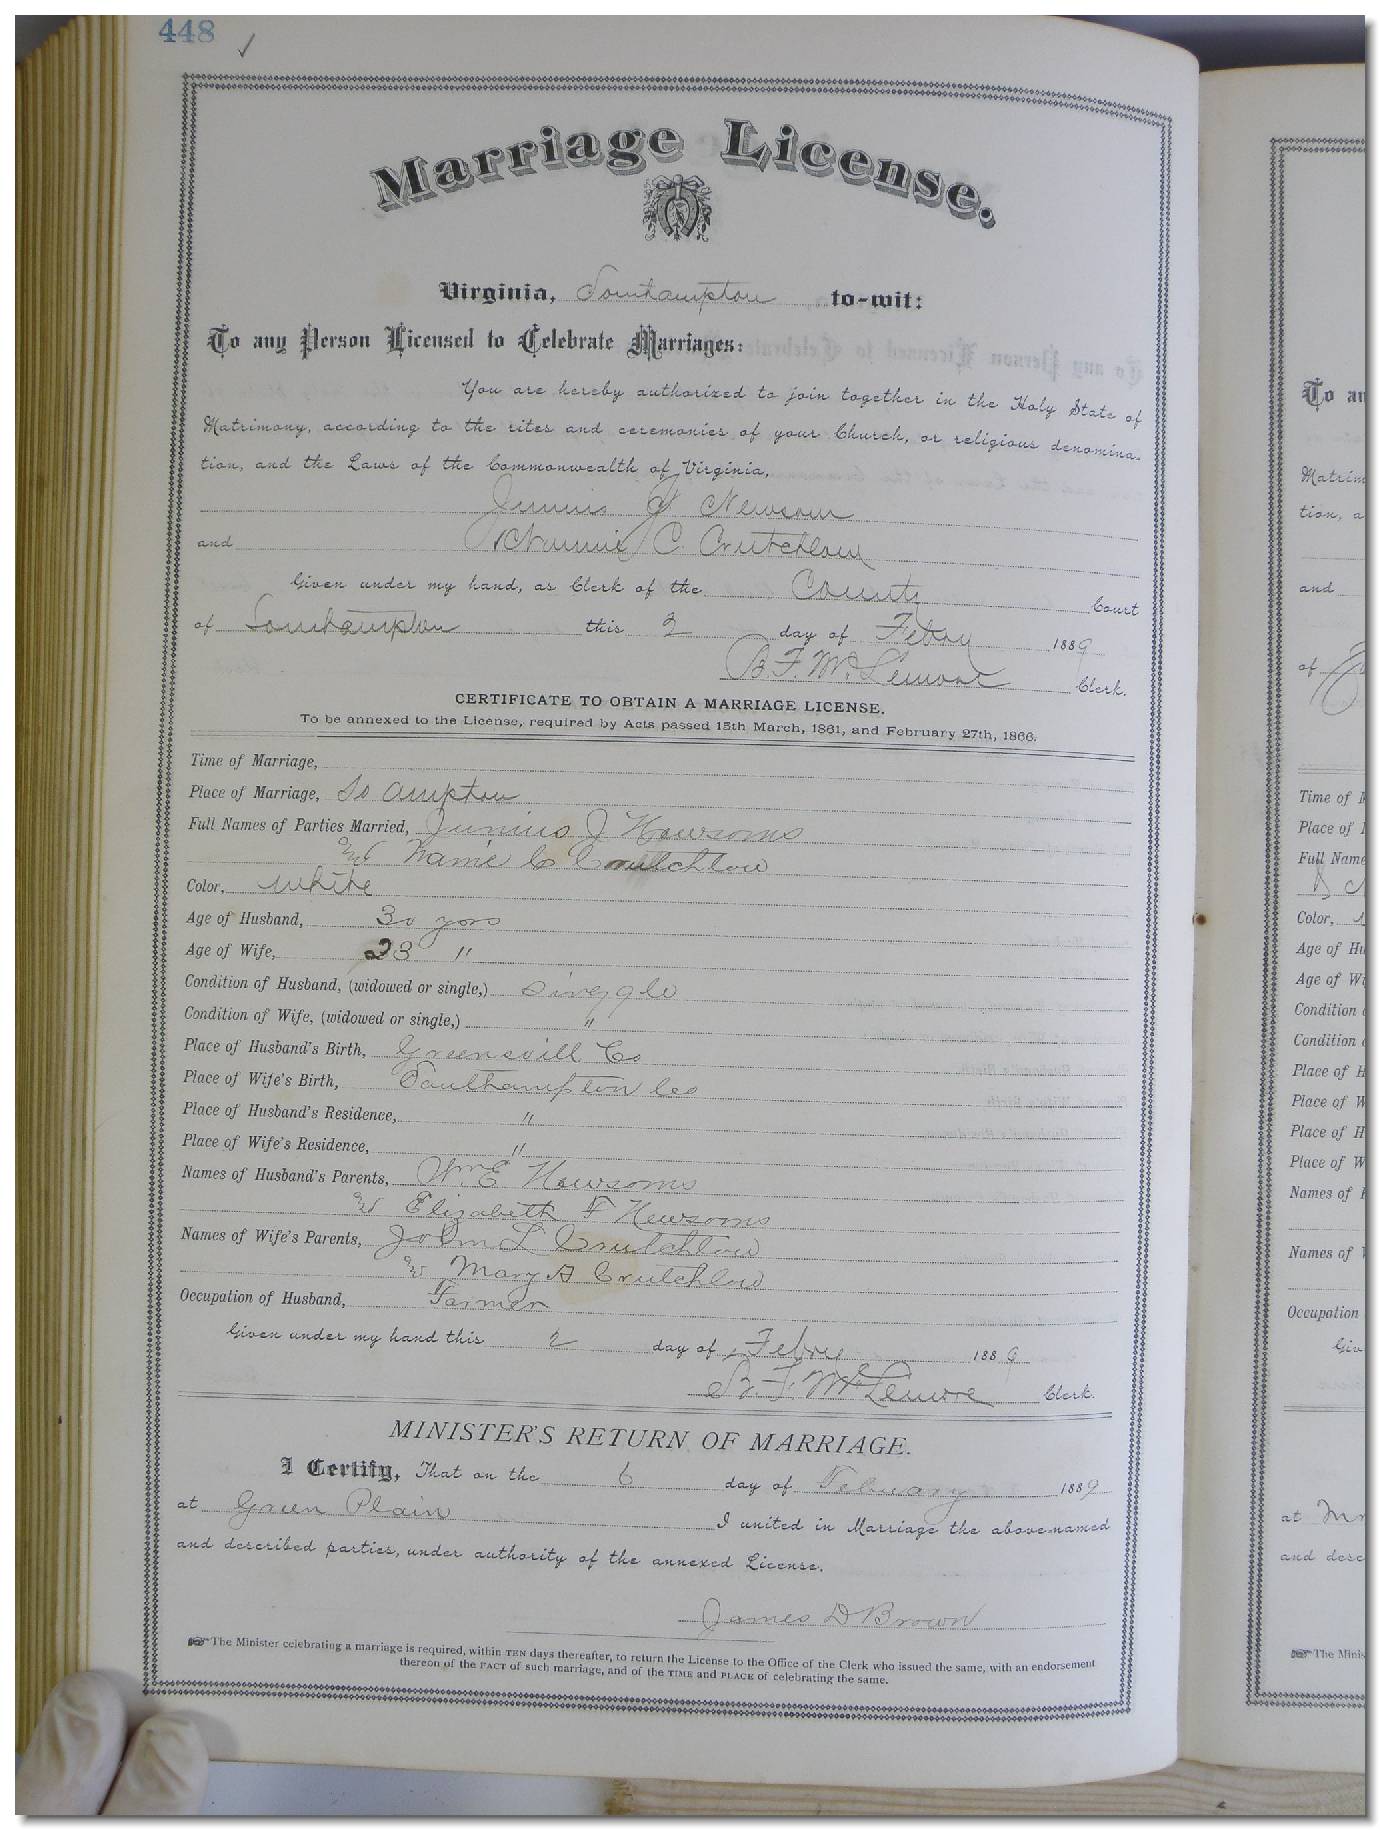 448
Marriage License.
Virginia, Southampton to-wit:
To any Person Licensed to Celebrate Marriages:
You are hereby authorized to join together in the Holy State of
Matrimony, according to the rites and ceremonies of your Church, or religious denomina-
tion, and the Laws of the Commonwealth of Virginia,
Junius J Newsom
and Nannie C Crutchlow
Given under my hand, as Clerk of the County Court
of Southampton this 2 day of Febry 1889
B. F. McLemore Clerk.
CERTIFICATE TO OBTAIN A MARRIAGE LICENSE.
To be annexed to the License, required by Acts passed 15th March, 1861, and February 27th, 1866.
Time of Marriage,
Place of Marriage, So ampton
Full Names of Parties Married, Junius J Newsoms
and Namie C Crutchlow
Color, White
Age of Husband, 30 yors
Age of Wife, 23 "
Condition of Husband, (widowed or single,)
Condition of Wife, (widowed or single,) "
Place of Husband's Birth, Greensvill Co
Place of Wife's Birth, Southampton Co
Place of Husband's Residence, "
Place of Wife's Residence, "
Names of Husband's Parents, Wm E Newsoms
and Elizabeth F Newsoms
Names of Wife's Parents, John L Crutchlow
and Mary A Crutchlow
Occupation of Husband, Farmer
Given under my hand this 2 day of 1889
B. F. McLemore Clerk.
MINISTER'S RETURN OF MARRIAGE.
I Certify, That on the 6 day of Febuary 1889
at Green Plain I united in Marriage the above-named
and described parties, under authority of the annexed License.
James D Brown
The Minister celebrating a marriage is required, within TEN days thereafter, to return the License to the Office of the Clerk who issued the same, with an endorsement
thereon of the FACT of such marriage, and of the TIME and PLACE of celebrating the same.
To an
Matrim
tion, a
and
of
Time of
Place of
Full Name
Color,
Age of Hu
Age of Wi
Condition
Condition
Place of H
Place of W
Place of H
Place of W
Names of
Names of
Occupation
Giv
at
and desc
The Minis